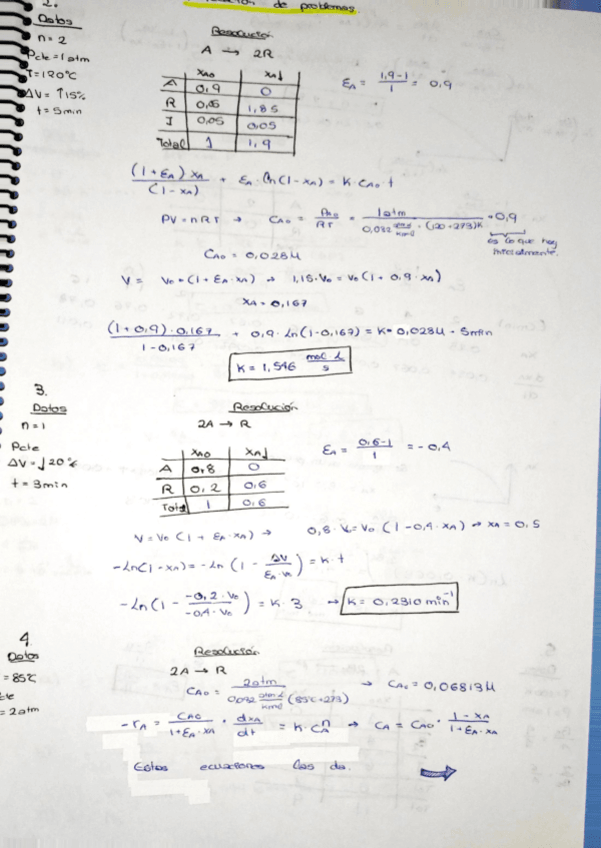 de problemas.
2.
Datos
n = 2
Pcte = 1 atm
T = 120°C
ΔV = ↑15%
t = 5 min
Resolución
A → 2R
XA0 XAf
A 0,9 0
R 0,05 1,85
I 0,05 0,05
Total 1 1,9
εA = (1,9-1)/1 = 0,9
((1+εA) XA)/(1-XA) + εA · Ln(1-XA) = K · CA0 · t
PV = nRT → CA0 = PA0/RT = 1 atm/(0,082 · (120+273)K) · 0,9
es lo que hay
inicialmente.
CA0 = 0,028M
V = V0 · (1 + εA · XA) → 1,15 · V0 = V0 (1 + 0,9 · XA)
XA = 0,167
((1+0,9) · 0,167)/(1-0,167) + 0,9 · Ln(1-0,167) = K · 0,028M · 5min
K = 1,546
3.
Datos
n = 1
Pcte
ΔV = ↓20%
t = 3min
Resolución
2A → R
XA0 XAf
A 0,8 0
R 0,2 0,6
Total 1 0,6
εA = (0,6-1)/1 = -0,4
V = V0 (1 + εA · XA) → 0,8 · V0 = V0 (1 - 0,4 · XA) → XA = 0,5
-Ln(1-XA) = -Ln (1 - ΔV/(εA · V0)) = K · t
-Ln (1 - (-0,2 · V0)/(-0,4 · V0)) = K · 3 → K = 0,2310 min⁻¹
4.
Datos
= 85°C
cte
= 2atm
Resolución
2A → R
CA0 = 2atm/(0,082 (85°C+273)) → CA0 = 0,06813M
-rA = CA0/(1+εA · XA) · dXA/dt = K · CAⁿ → CA = CA0 · (1-XA)/(1+εA · XA)
Estas ecuaciones las da.